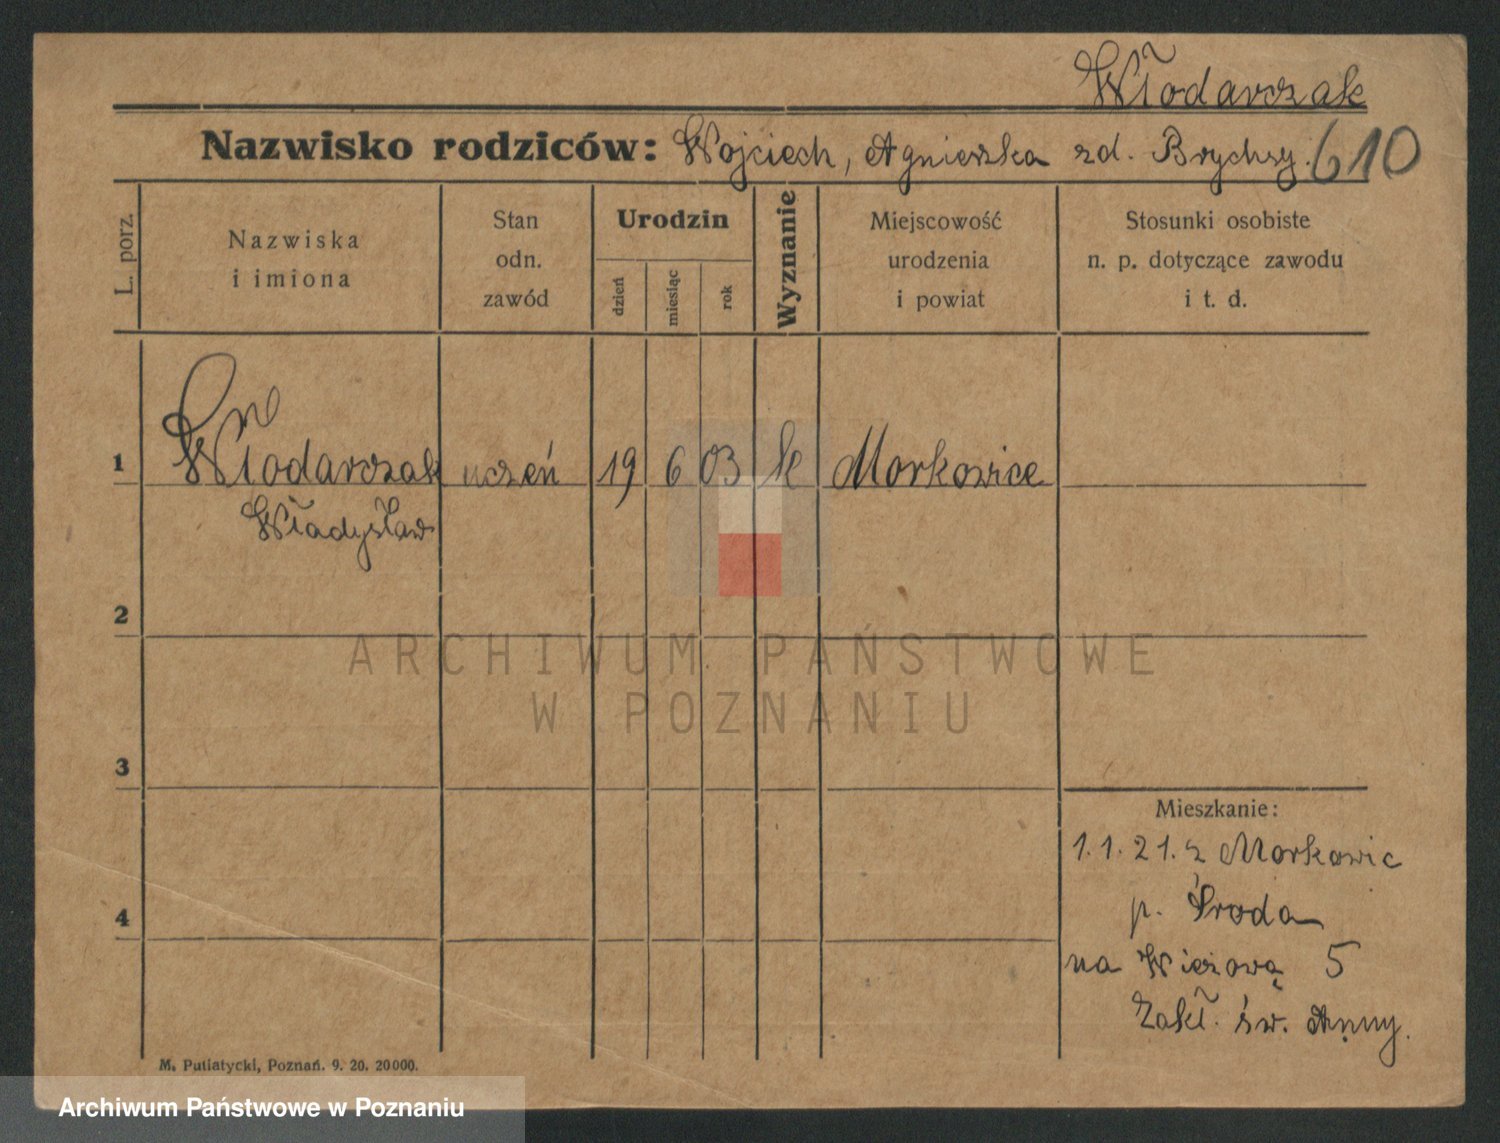 Włodarczak
Nazwisko rodziców: Wojciech, Agnieszka zd. Brychcy.
610
L. porz.
Nazwiska
i imiona
Stan
odn.
zawód
Urodzin
dzień
miesiąc
rok
Wyznanie
Miejscowość
urodzenia
i powiat
Stosunki osobiste
n. p. dotyczące zawodu
i t. d.
1 Włodarczak uczeń 19 6 03 k Morkowice
Władysław
2
ARCHIWUM PAŃSTWOWE
W POZNANIU
3
Mieszkanie:
1.1.21. z Morkowic
4 p. Środa
na Wieżową 5
Zakł. św. Anny.
M. Putiatycki, Poznań. 9. 20. 20000.
Archiwum Państwowe w Poznaniu